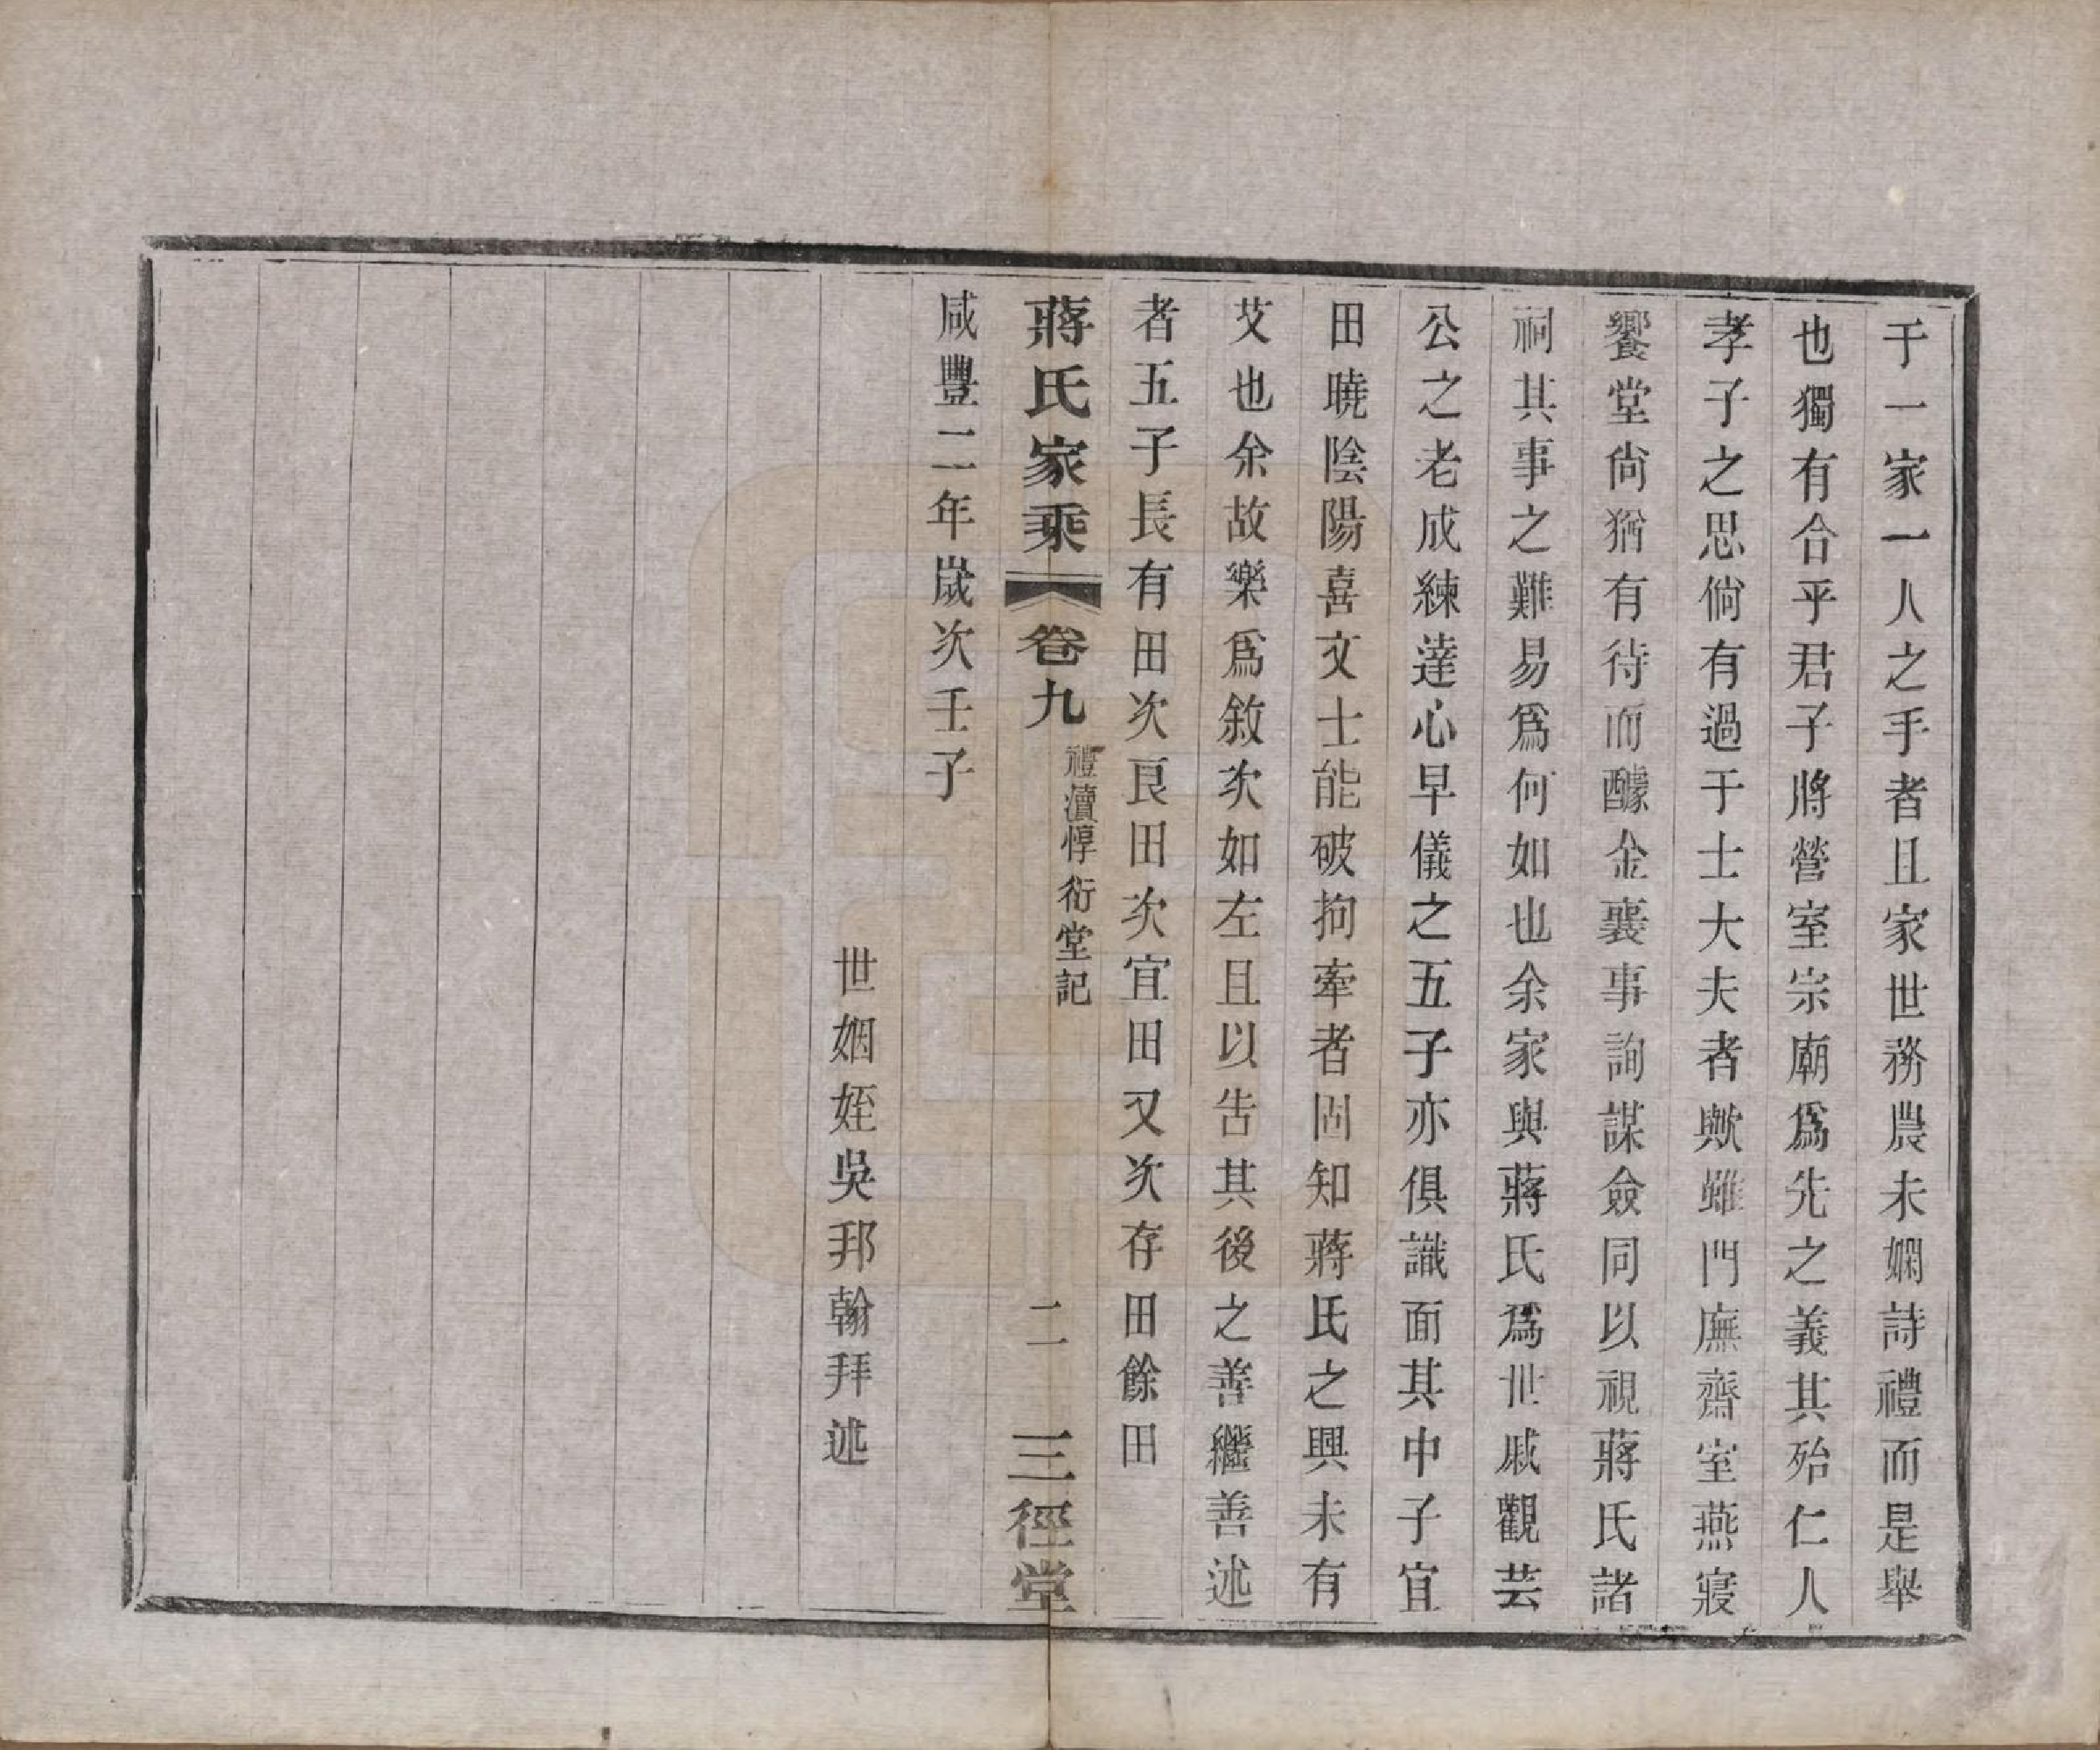 于一家一人之手者且家世務農未嫻詩禮而是舉
也獨有合乎君子將營室宗廟爲先之義其殆仁人
孝子之思倘有過于士大夫者歟雖門廡齋室燕寢
饗堂尙猶有待而醵金襄事詢謀僉同以視蔣氏諸
祠其事之難易爲何如也余家與蔣氏爲世戚觀芸
公之老成練達心早儀之五子亦俱識面其中子宜
田曉陰陽喜文士能破拘牽者固知蔣氏之興未有
艾也余故樂爲敘次如左且以告其後之善繼善述
者五子長有田次艮田次宜田又次存田餘田
蔣氏家乘 卷九 禮瀆惇衍堂記 二 三徑堂
咸豐二年歲次壬子
世姻姪吳邦翰拜述